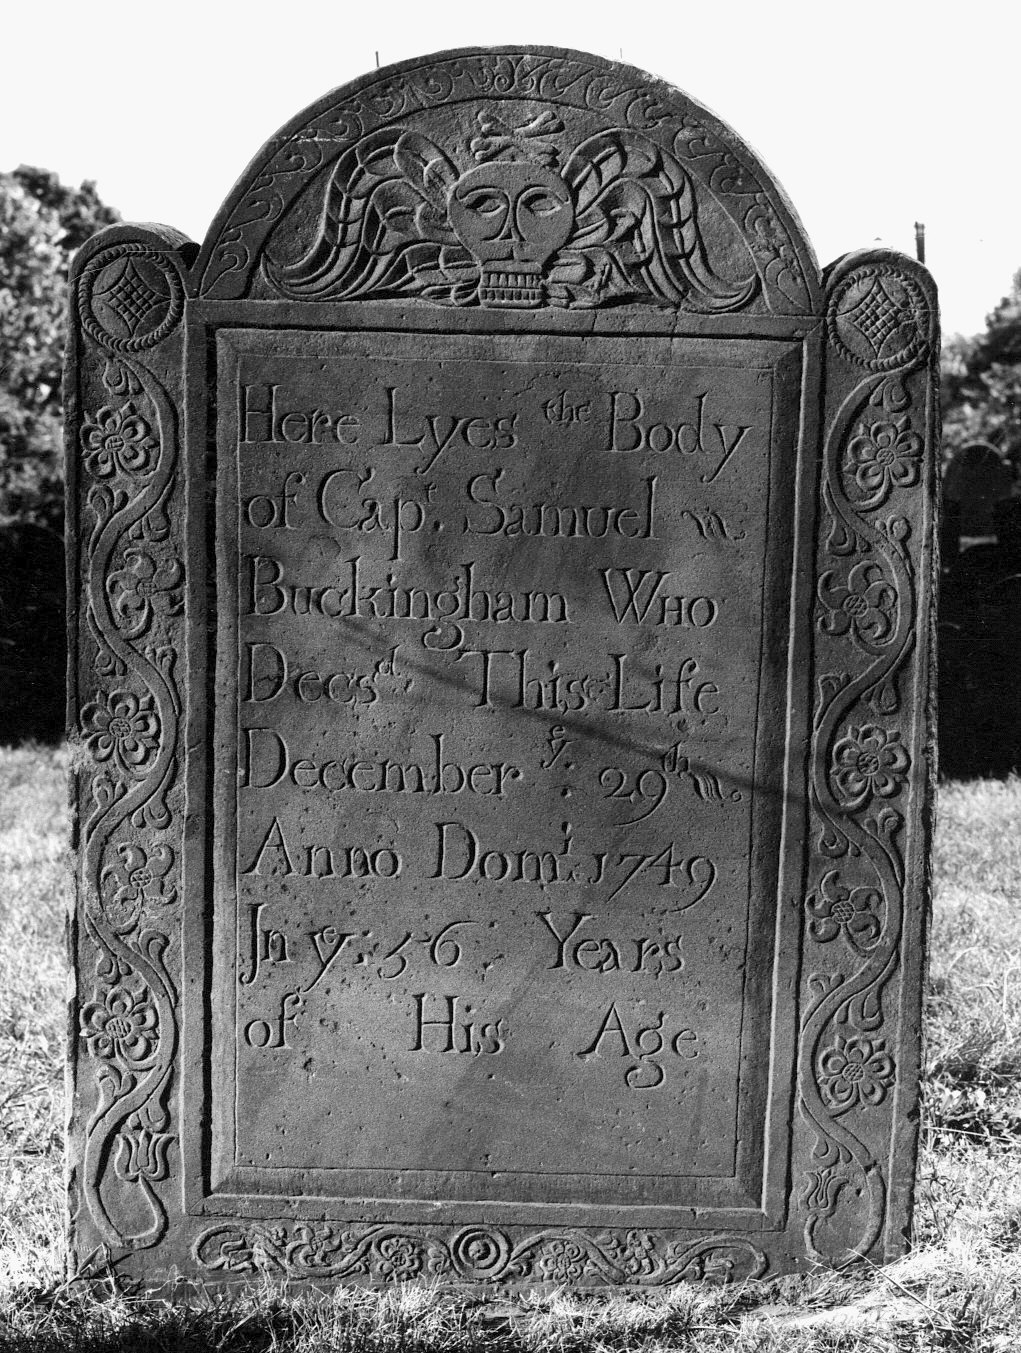 Here Lyes the Body
of Capt. Samuel
Buckingham Who
Decsd. This Life
December, ye. 29th
Anno Domi: 1749
Jn ye. 56, Years
of His Age